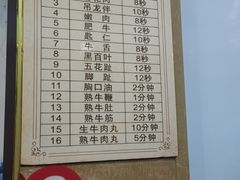 3 8秒
4 吊龙伴 10秒
5 嫩肉 8秒
6 肥牛 8秒
7 匙仁 10秒
8 牛舌 8秒
9 黑百叶 8秒
10 五花趾 12秒
11 脚趾 12秒
12 胸口油 2分钟
13 熟牛鞭 2分钟
14 熟牛肚 2分钟
15 熟牛筋 2分钟
16 生牛肉丸 10分钟
熟牛肉丸 5分钟